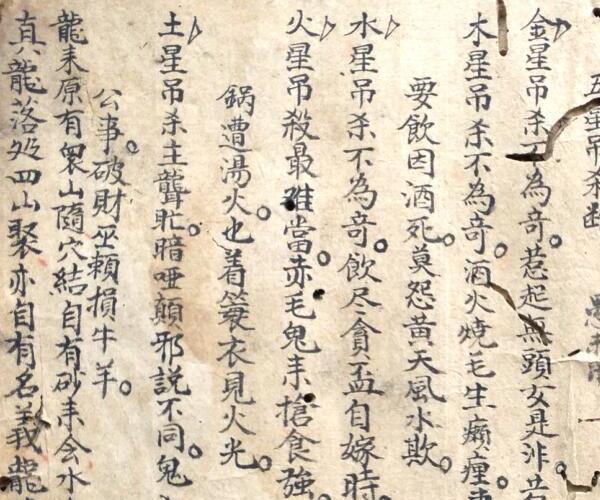 五星吊殺
金星吊杀不為奇惹起無頭女是非
木星吊杀不為奇。酒火燒毛生癩痙
要飲因酒死。莫怨黄天風水欺。
水星吊杀不為奇。飲尽貪盃自嫁時
火星吊殺最難當。赤毛鬼耒搶食強
鍋遭湯火。也着簑衣見火光。
土星吊杀主聾盲。暗啞顛邪説不同。鬼
公事。破財坐賴損牛羊。
龍耒原有衆山隨穴結自有砂耒会水
真龍落処四山聚亦自有名義龍